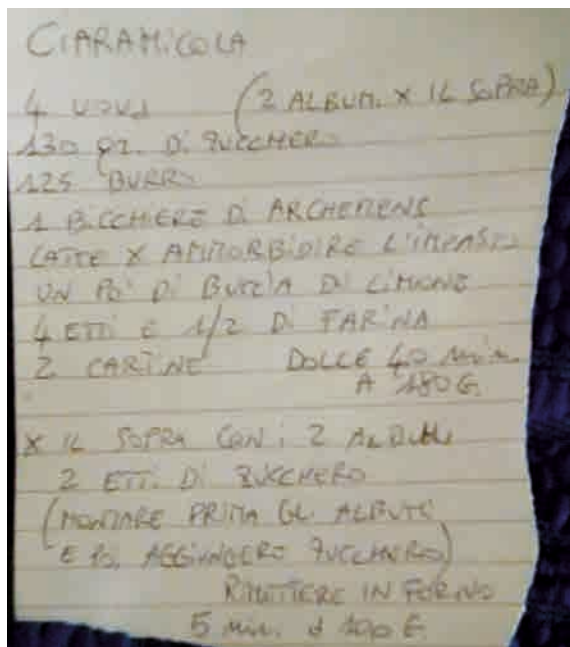 CIARAMICOLA
4 UOVA (2 ALBUM. X IL SOPRA)
130 gr. DI ZUCCHERO
125 BURRO
1 BICCHIERE DI ARCHEMENS
LATTE X AMMORBIDIRE L'IMPASTO
UN PO' DI BUCCIA DI LIMONE
4 ETTI E 1/2 DI FARINA
2 CARTINE DOLCE 40 min.
A 180 G.
X IL SOPRA CON i 2 ALBUMI
2 ETTI DI ZUCCHERO
(MONTARE PRIMA GLI ALBUMI
E POI AGGIUNGERE ZUCCHERO)
RIMETTERE IN FORNO
5 min. A 100 G.